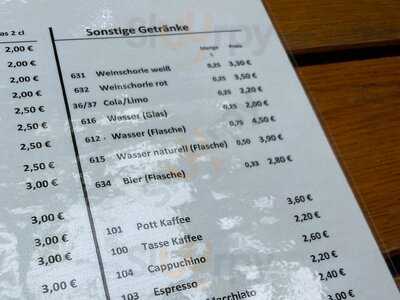 as 2 cl
2,00 €
2,00 €
2,00 €
2,50 €
2,50 €
2,50 €
2,50 €
3,00 €
3,00 €
3,00 €
3,00 €
3,00 €
Sonstige Getränke
Menge Preis
L
631 Weinschorle weiß 0,25 3,30 €
632 Weinschorle rot 0,25 3,50 €
36/37 Cola/Limo 0,25 2,20 €
616 Wasser (Glas) 0,25 2,00 €
612 . Wasser (Flasche) 0,75 4,50 €
615 Wasser naturell (Flasche) 0,50 3,90 €
634 Bier (Flasche) 0,33 2,80 €
101 Pott Kaffee 3,60 €
100 Tasse Kaffee 2,20 €
104 Cappuchino 2,60 €
103 Espresso 2,20 €
Macchiato 2,40 €
3,00 €